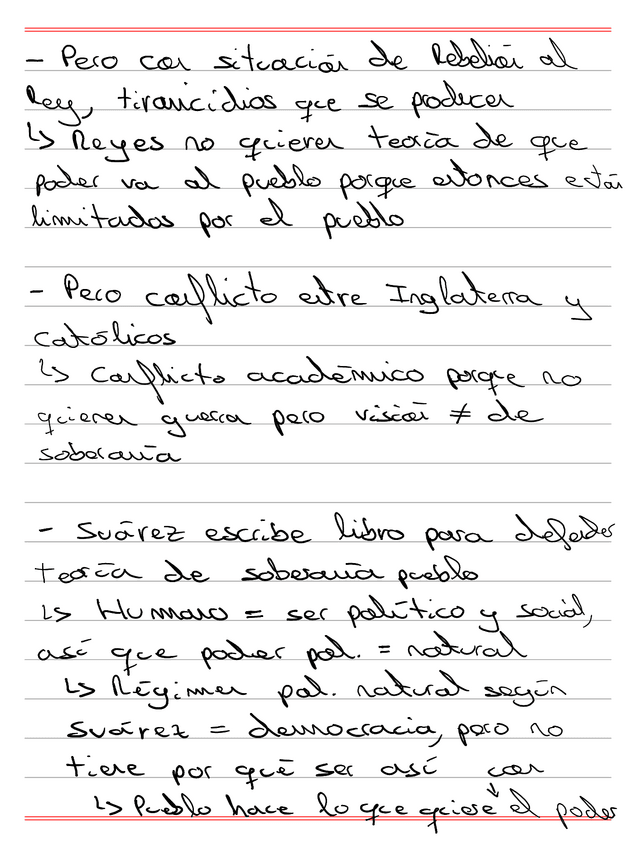 - Pero con situación de Rebelión al
Rey, tiranicidios que se producen
↳ Reyes no quieren teoría de que
poder va al pueblo porque entonces están
limitados por el pueblo
- Pero conflicto entre Inglaterra y
católicos
↳ Conflicto académico porque no
quieren guerra pero visión ≠ de
soberanía
- Suárez escribe libro para defender
teoría de soberanía pueblo
↳ Humano = ser político y social,
así que poder pol. = natural
↳ Régimen pol. natural según
Suárez = democracia, pero no
tiene por qué ser así
↳ Pueblo hace lo que quiere con el poder